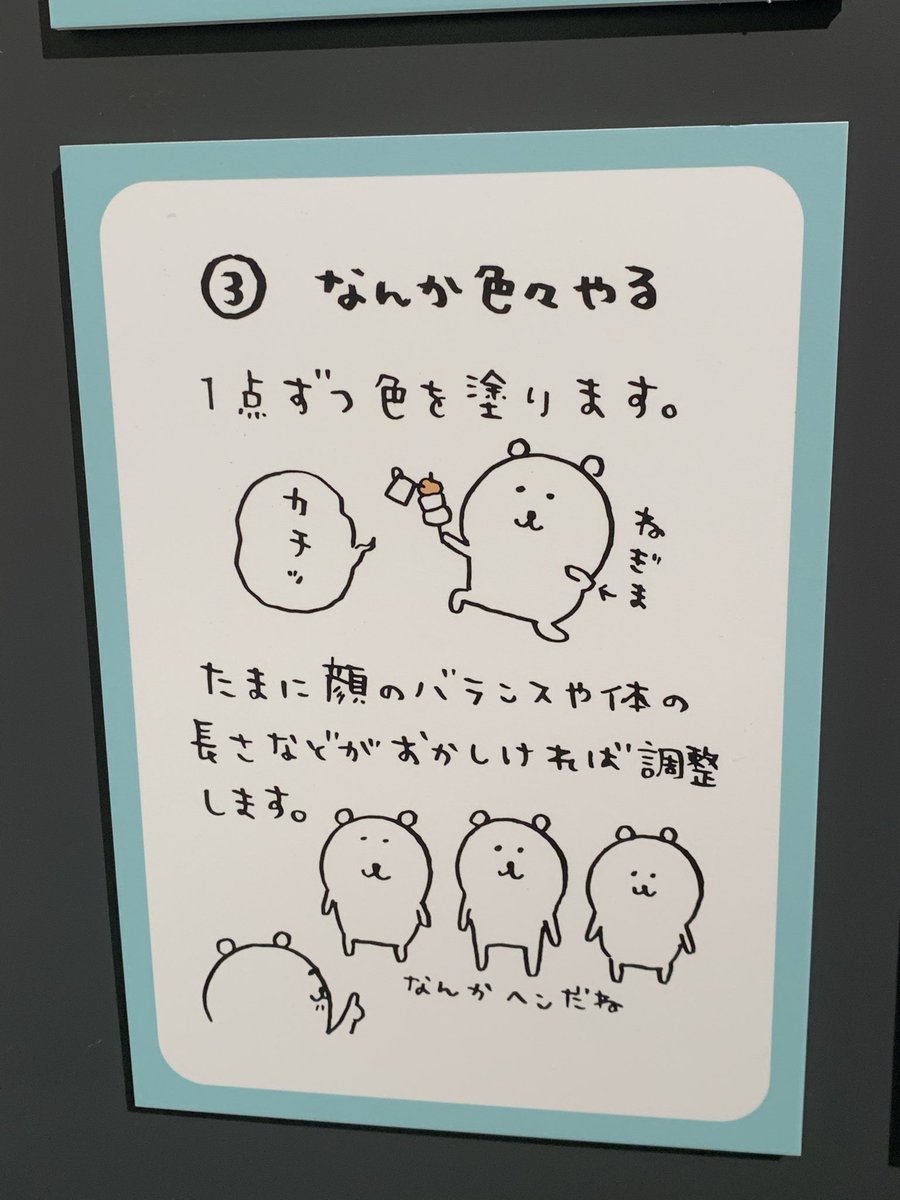 ③ なんか色々やる
1点ずつ色を塗ります。
カチッ
ねぎま
たまに顔のバランスや体の
長さなどがおかしければ調整
します。
なんかヘンだね